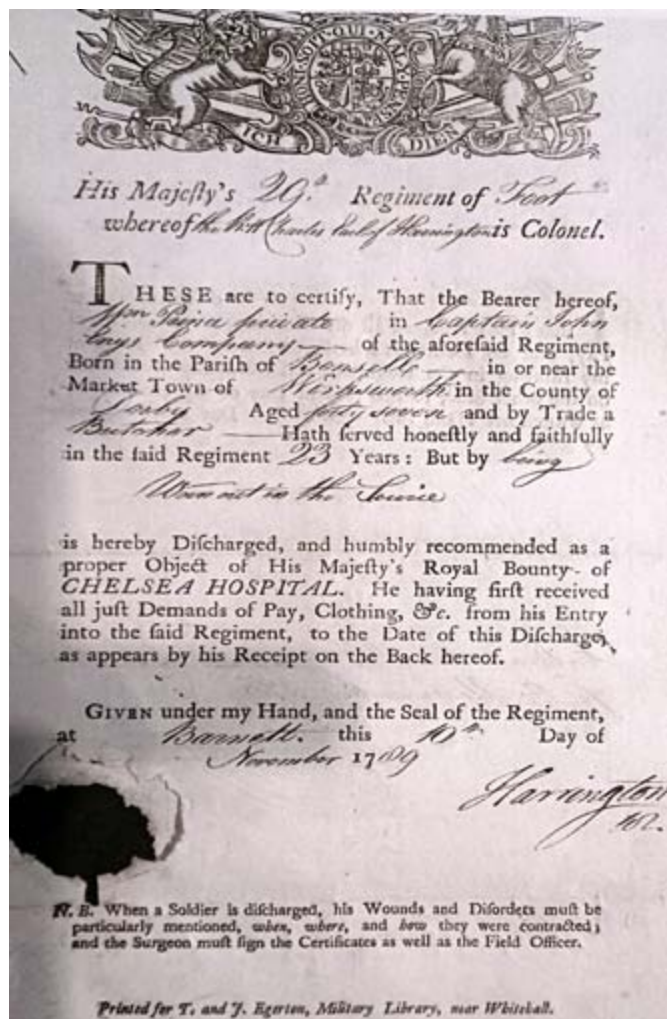 HONI·SOIT·QUI·MAL·Y·PENSE
ICH DIEN
His Majeſty's 29th Regiment of Foot
whereof the Charles Earl of Harrington is Colonel.
THESE are to certify, That the Bearer hereof,
Wm private in Captain John
Enys Company of the aforeſaid Regiment,
Born in the Pariſh of in or near the
Market Town of Wirksworth in the County of
Derby Aged forty seven and by Trade a
Butcher Hath ſerved honeſtly and faithfully
in the ſaid Regiment 23 Years: But by being
Worn out in the Service
is hereby Diſcharged, and humbly recommended as a
proper Object of His Majeſty's Royal Bounty of
CHELSEA HOSPITAL. He having firſt received
all juſt Demands of Pay, Clothing, &c. from his Entry
into the ſaid Regiment, to the Date of this Diſcharge,
as appears by his Receipt on the Back hereof.
GIVEN under my Hand, and the Seal of the Regiment,
at Barnett. this 10th Day of
November 1789
Harrington
N. B. When a Soldier is diſcharged, his Wounds and Diſorders muſt be
particularly mentioned, when, where, and how they were contracted;
and the Surgeon muſt ſign the Certificates as well as the Field Officer.
Printed for T. and J. Egerton, Military Library, near Whitehall.